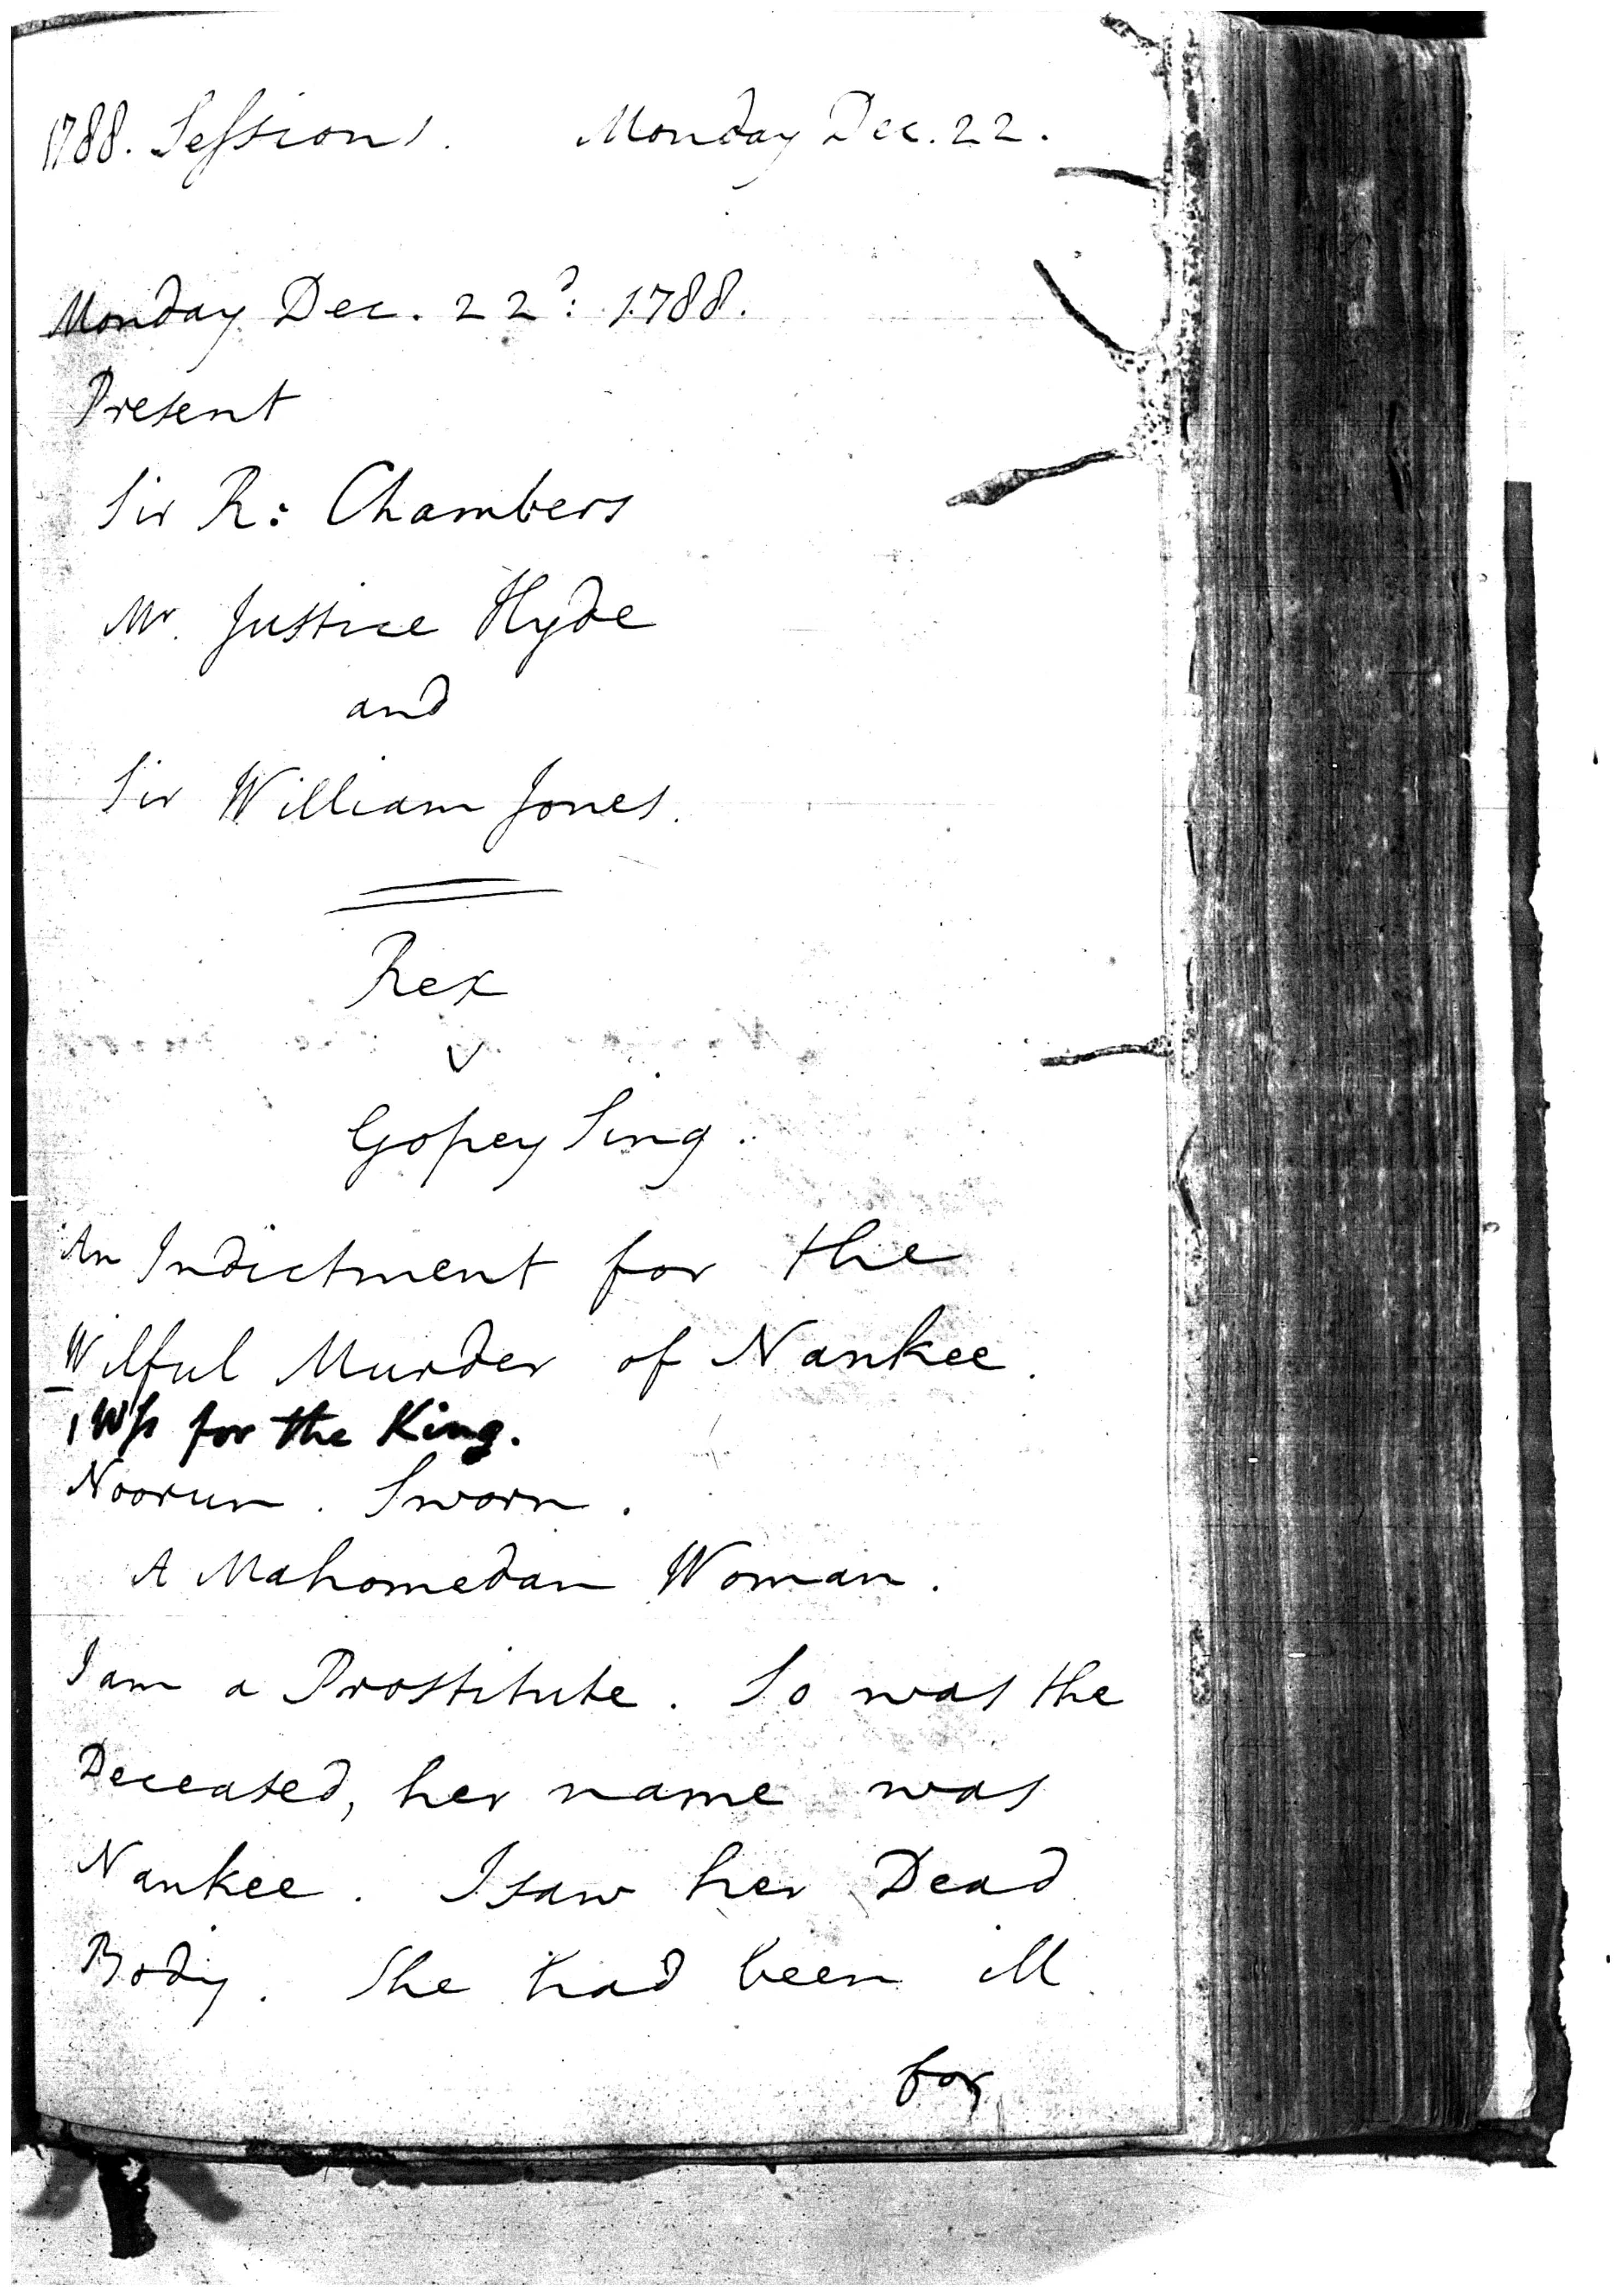 1788. Sessions. Monday Dec. 22.
Monday Dec. 22d: 1788.
Present
Sir R: Chambers
Mr. Justice Hyde
and
Sir William Jones.
Rex
v
Gopey Sing.
An Indictment for the
Wilful Murder of Nankee.
1 Wss for the King.
Noorun. Sworn.
A Mahomedan Woman.
I am a Prostitute. So was the
Deceased, her name was
Nankee. I saw her Dead
Body. She had been ill
for